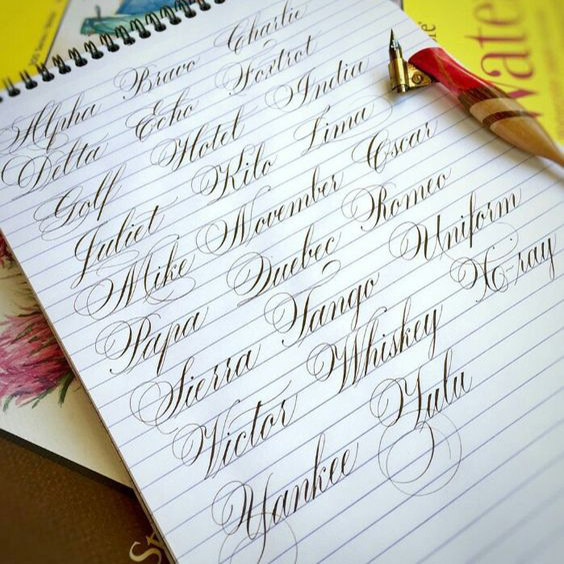 Alpha Bravo Charlie
Delta Echo Foxtrot
Golf Hotel India
Juliet Kilo Lima
Mike November Oscar
Papa Quebec Romeo
Sierra Tango Uniform
Victor Whiskey X-ray
Yankee Zulu
Wate
St